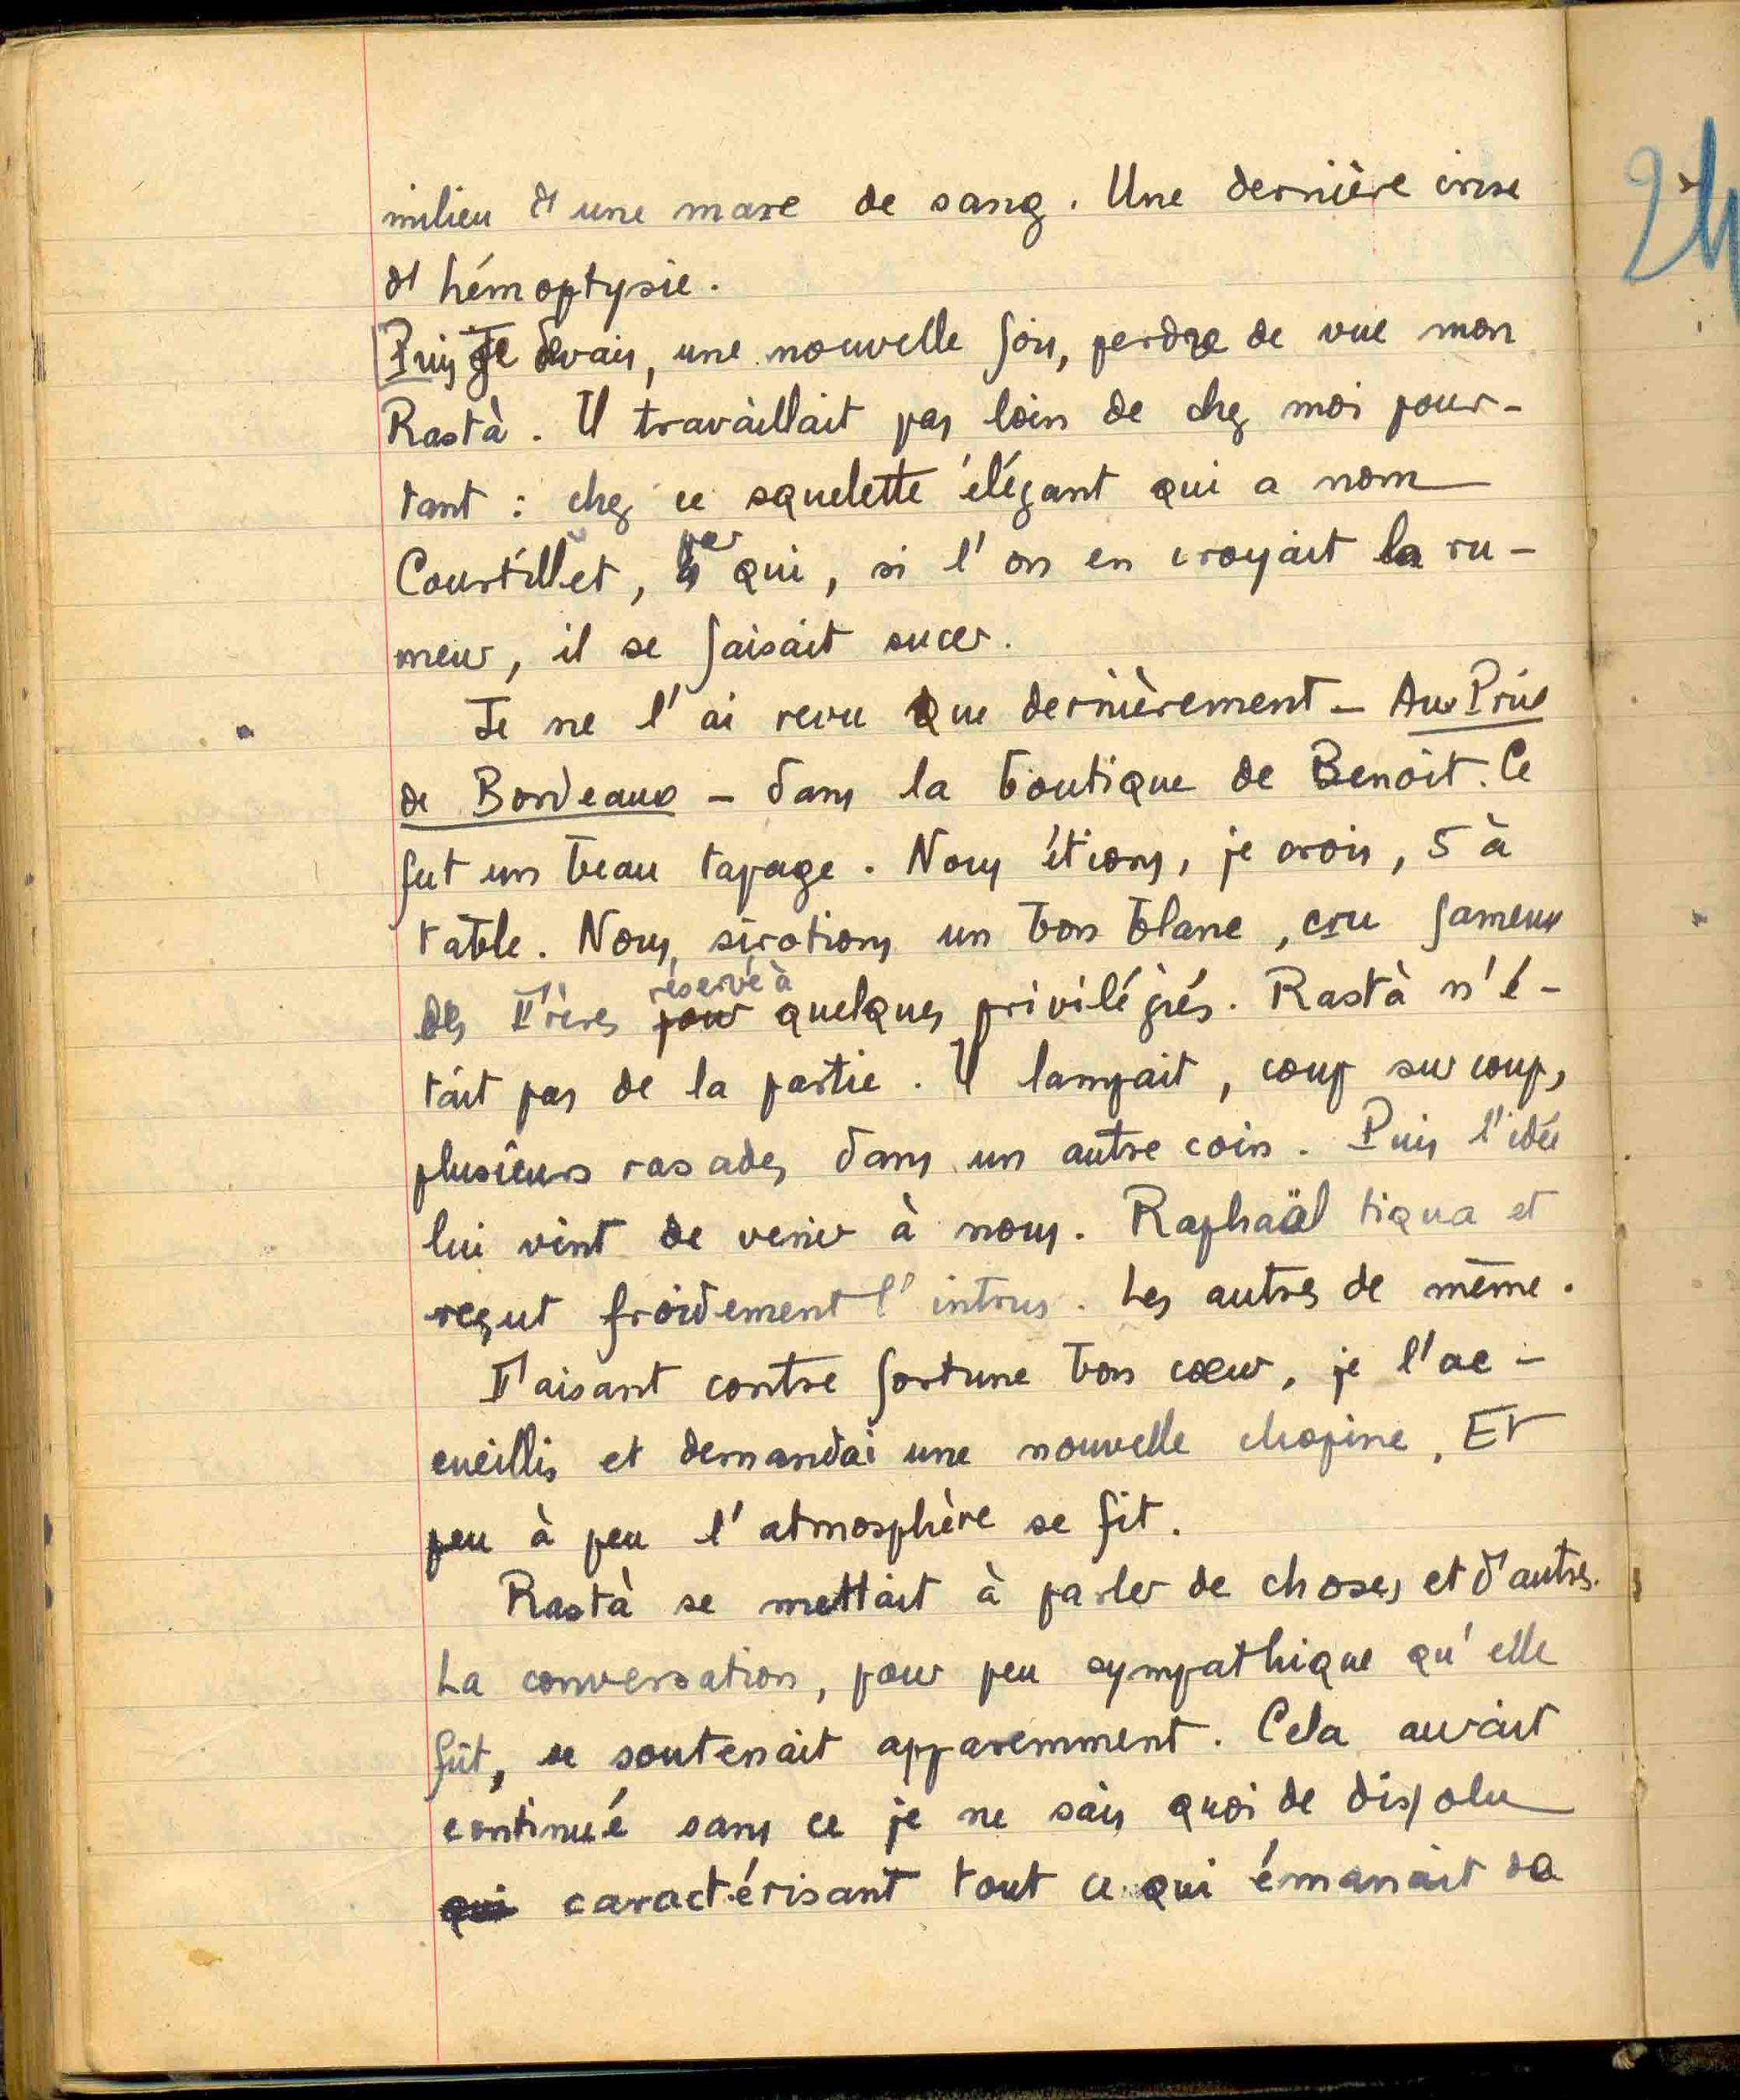 milieu d'une mare de sang. Une dernière crise
d'hémoptysie.
Puis Je devais, une nouvelle fois, perdre de vue mon
Rastà. Il travaillait pas loin de chez moi pour-
tant : chez ce squelette élégant qui a nom
Courtillet, par qui, si l'on en croyait la ru-
meur, il se faisait sucer.
Je ne l'ai revu que dernièrement - Aux Prix
de Bordeaux - dans la boutique de Benoit. Ce
fut un beau tapage. Nous étions, je crois, 5 à
table. Nous sirotions un bon blanc, cru fameux
des Frères réservé à quelques privilégiés. Rastà n'é-
tait pas de la partie. Il lampait, coup sur coup,
plusieurs rasades dans un autre coin. Puis l'idée
lui vint de venir à nous. Raphaël tiqua et
reçut froidement l'intrus. Les autres de même.
Faisant contre fortune bon cœur, je l'ac-
cueillis et demandai une nouvelle chopine, Et
peu à peu l'atmosphère se fit.
Rastà se mettait à parler de choses et d'autres.
La conversation, pour peu sympathique qu'elle
fût, se soutenait apparemment. Cela aurait
continué sans ce je ne sais quoi de dissolu
qui caractérisant tout ce qui émanait de
24